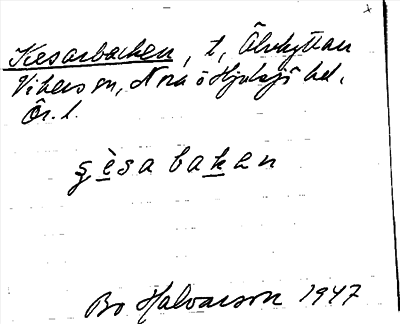 Kesarbacken, t, Älvhyttan
Vikers sn, Nora o Hjulsjö bd.
Ör. l.
ȿèsa bakan
Bo Halvarson 1947